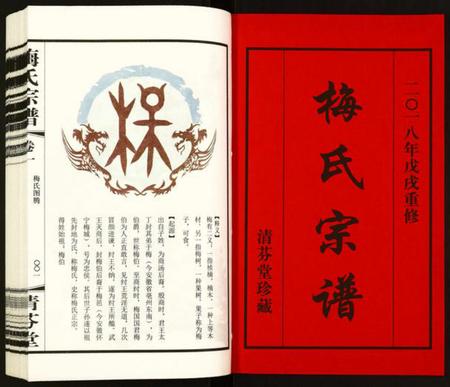 二〇一八年戊戌重修
梅氏宗谱
清芬堂珍藏
【释义】
梅有二义，一指桢楠、楠木，一种上等木
材。另一指梅树，一种果树，果子称为梅
子，可食。
【起源】
出自子姓，为商汤后裔。殷商时，君王太
丁封其弟于梅（今安徽省亳州东南），为
伯爵，世称梅伯。至商纣时，梅国国君梅
伯为人正直敢言，见纣王荒淫无道，几次
冒颜进谏，纣王不纳，遂为纣王所醢。武
王灭商后，封梅伯后裔于梅（今安徽怀
宁梅城），号为忠侯，其后世子孙遂以祖
先封地为氏，称梅氏，史称梅氏正宗。
得姓始祖：梅伯
梅氏宗谱
卷一
梅氏图腾
〇〇一
清芬堂